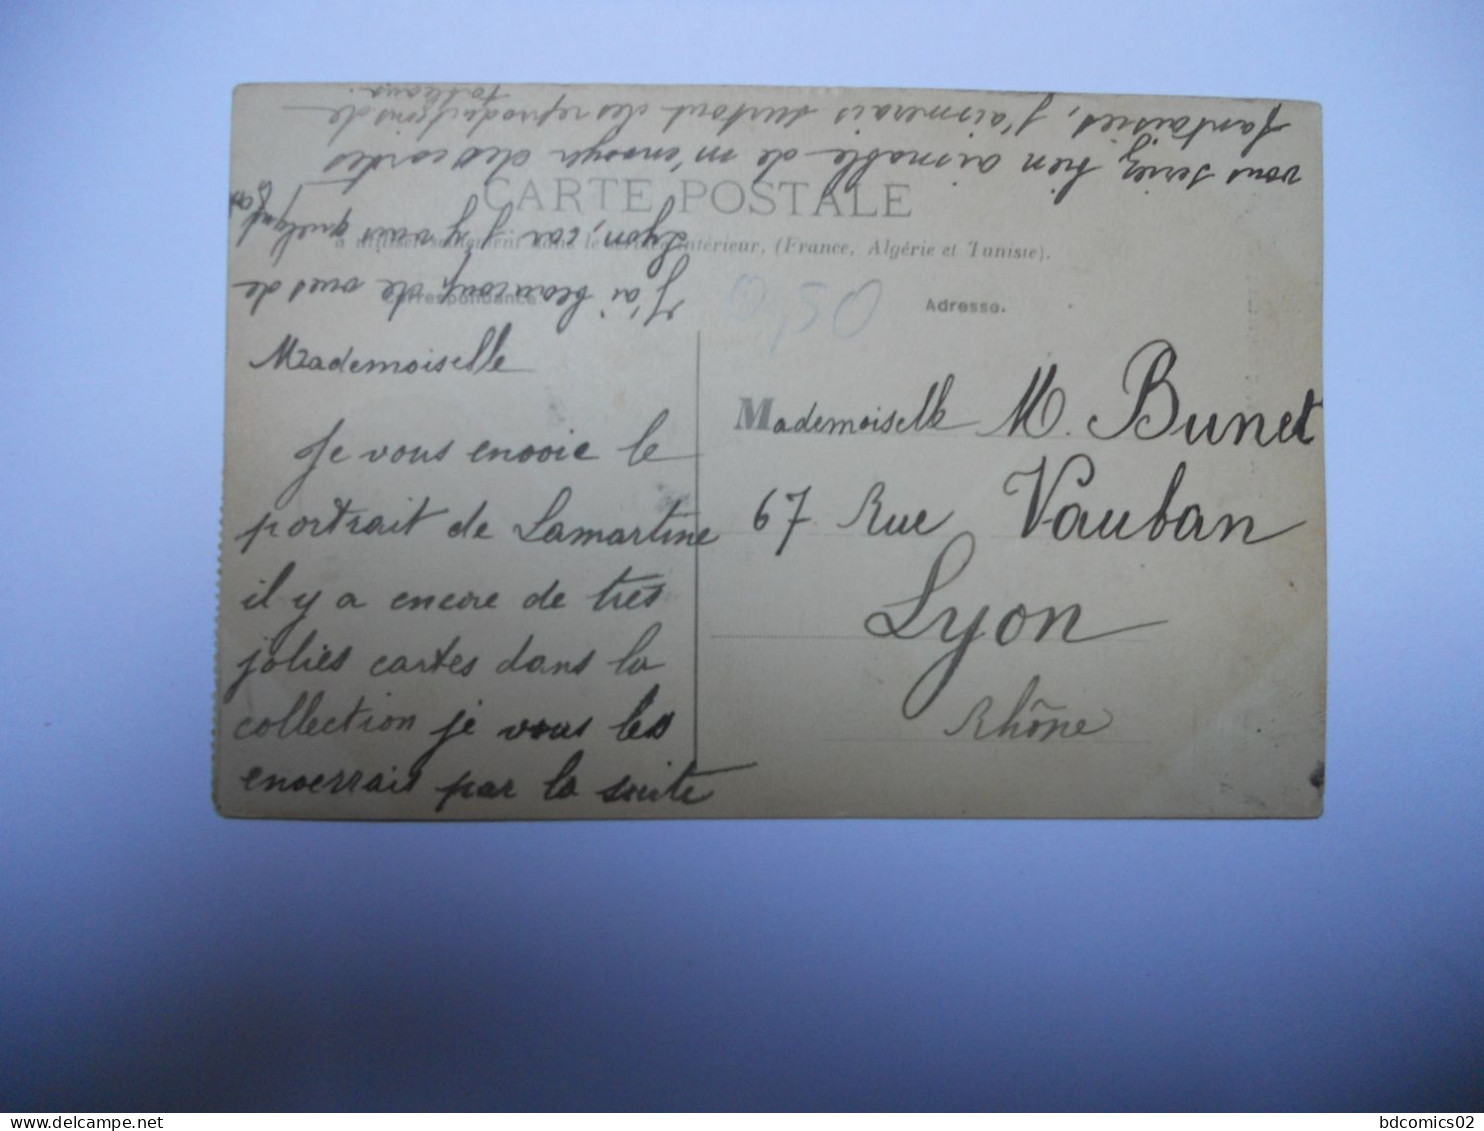 CARTE POSTALE
à utiliser seulement dans le service intérieur, (France, Algérie et Tunisie).
Correspondance
Adresse.
0,50
Mademoiselle
Je vous envoie le
portrait de Lamartine
il y a encore de très
jolies cartes dans la
collection je vous les
enverrait par la suite
J'ai beaucoup de vues de
Lyon, car j'y vais quelquefois
vous seriez bien aimable de m'envoyer des cartes
fantaisies, j'aimerais surtout des reproductions de
tableaux.
Mademoiselle M. Bunet
67 Rue Vauban
Lyon
Rhône
bdcomics02